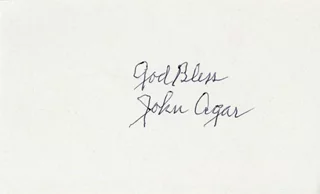 God Bless
John Agar